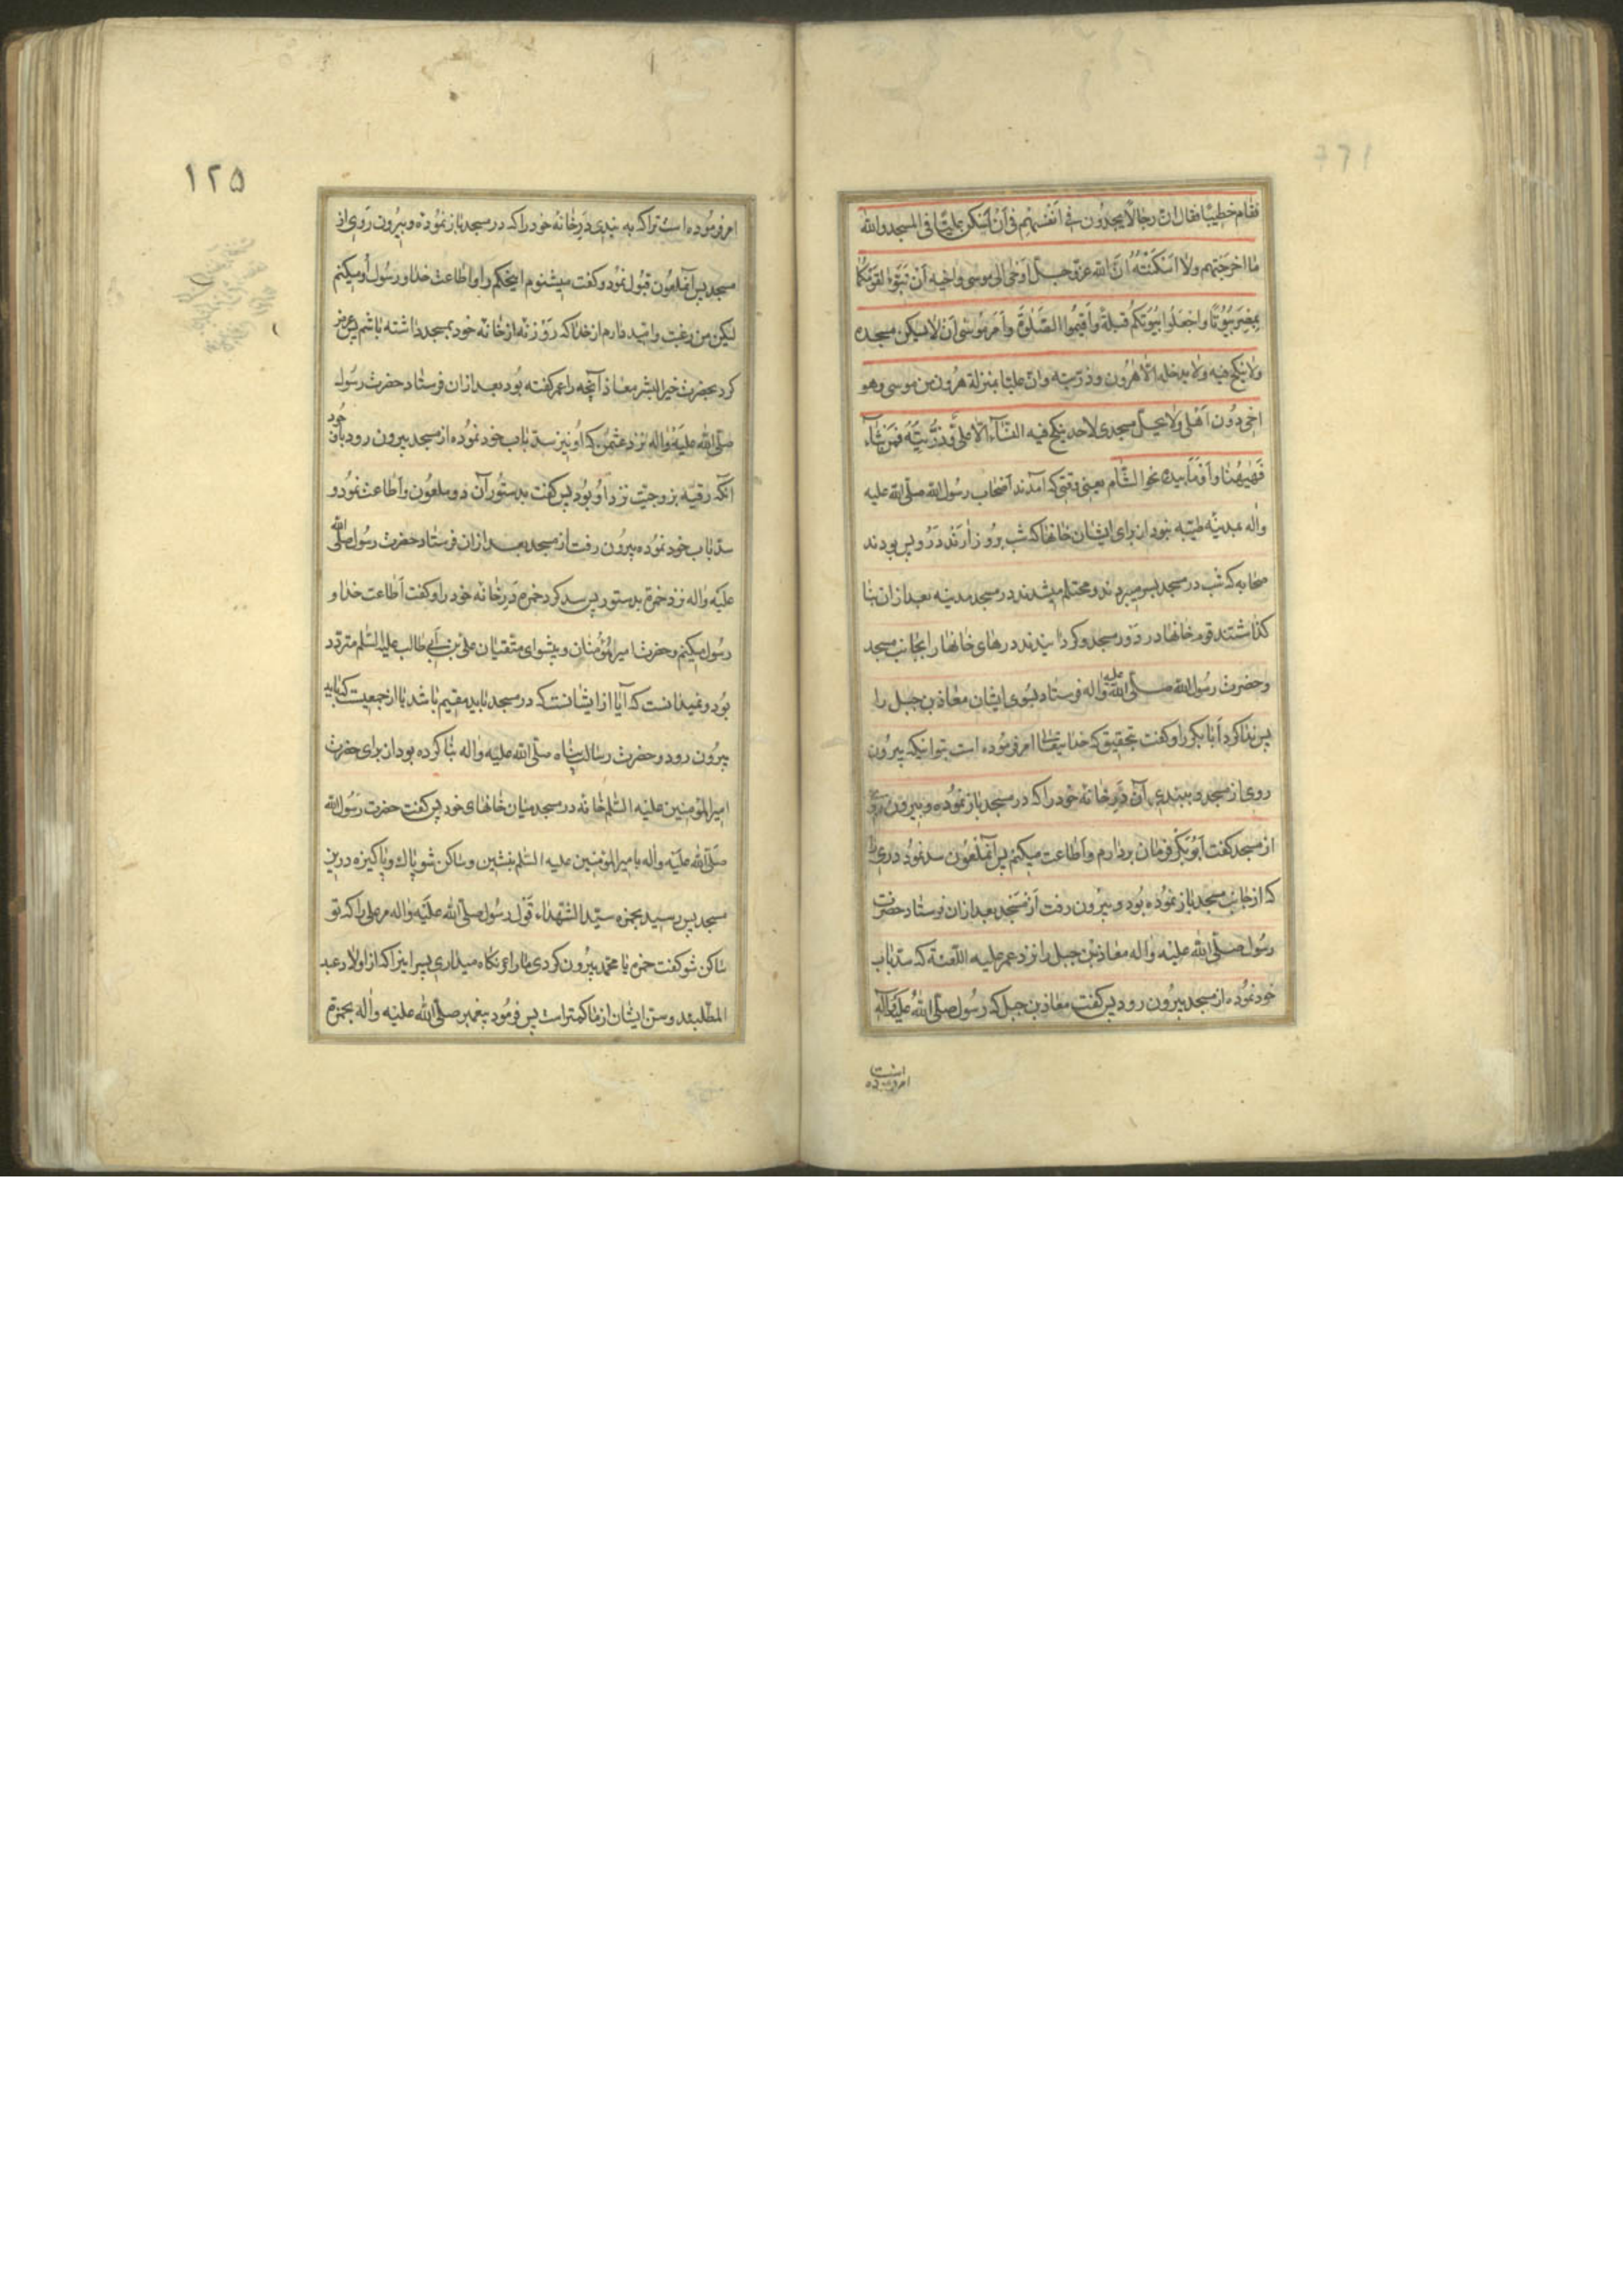 فقام خطیبًا فقال ان رجالا یجدون فی انفسهم فی ان اسکن علیًا فی المسجد والله
ما اخرجتهم ولا اسکنته ان الله عز و جل اوحی الی موسی و اخیه ان تبوّء لقومکما
بمصر بیوتًا واجعلوا بیوتکم قبلة واقیموا الصلوة وامر موسی ان لا یسکن مسجده
ولا ینکح فیه ولا یدخله الا هرون و ذریته وان علیًا بمنزلة هرون من موسی وهو
اخی دون اهلی ولا یحل مسجدی لاحد ینکح فیه النساء الا علی و ذریته فمن شاء
فههنا و اومأ بیده نحو الشام یعنی وقتی که آمدند اصحاب رسول الله صلی الله علیه
واله بمدینه طیبه نبود از برای ایشان خانها که شب بروز آرند در و پس بودند
صحابه که شب در مسجد بسر میبردند و محتلم میشدند در مسجد مدینه بعد از ان بنا
کذاشتند قوم خانها در دور مسجد و کردانیدند درهای خانها را بجانب مسجد
و حضرت رسول الله صلی الله علیه واله فرستاد بسوی ایشان معاذ بن جبل را
پس ندا کرد ابا بکر را و کفت بتحقیق که خدا تعالی امر فرموده است بتو اینکه بیرون
روی از مسجد و ببندی آن در خانه خود را که در مسجد باز نموده و بیرون روی
از مسجد کفت ابوبکر فرمان بردارم و اطاعت میکنم پس آنملعون سد نمود دری را
که از جانب مسجد باز نموده بود و بیرون رفت از مسجد بعد از ان فرستاد حضرت
رسول صلی الله علیه واله معاذ بن جبل را نزد عمر علیه اللعنة که سد باب
خود نموده از مسجد بیرون رود پس کفت معاذ بن جبل که رسول صلی الله علیه وآله
امر فرموده است
۱۲۵
امر فرموده است ترا که به بندی در خانه خود را که در مسجد باز نموده و بیرون روی از
مسجد پس آنملعون قبول نمود و کفت میشنوم اینحکم را و اطاعت خدا و رسول او میکنم
لیکن من رغبت و امید دارم از خدا که روزنه از خانه خود بمسجد داشته باشم پس عرض
کرد بحضرت خیر البشر معاذ آنچه را عمر کفته بود بعد از ان فرستاد حضرت رسول
صلی الله علیه واله نزد عثمن که او نیز سد باب خود نموده از مسجد بیرون رود با وجود
انکه رقیه بزوجیت نزد او بود پس کفت بدستور آن دو ملعون و اطاعت نمود و
سد باب خود نموده بیرون رفت از مسجد بعد از ان فرستاد حضرت رسول صلی الله
علیه واله نزد حمزه بدستور پس سد کرد حمزه در خانه خود را و کفت اطاعت خدا و
رسول میکنم و حضرت امیر المؤمنان و پیشوای متقیان علی بن ابی طالب علیه السلم متردد
بود و نمیدانست که آیا از ایشانست که در مسجد باید مقیم باشد یا از جمعیت که باید
بیرون رود و حضرت رسالت پناه صلی الله علیه واله بنا کرده بود از برای حضرت
امیر المؤمنین علیه السلم خانه در مسجد میان خانهای خود پس کفت حضرت رسول الله
صلی الله علیه واله با میر المؤمنین علیه السلم بنشین و ساکن شو پاك و پاکیزه درین
مسجد پس رسید بحمزه سید الشهداء قول رسول صلی الله علیه واله مر علی را که تو
ساکن شو کفت حمزه یا محمد بیرون کردی ما را و نکاه میداری پسرانیرا که از اولاد عبد
المطلبند و سن ایشان از ما کمتر است پس فرمود پیغمبر صلی الله علیه واله بحمزه